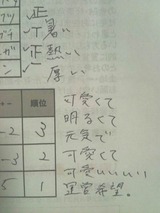 正
T 暑い
正 熱い
厚い
順位
-2 3
-3 2
5 1
可愛くて
明るくて
元気で
可愛くて
可愛いいいい
運営希望。